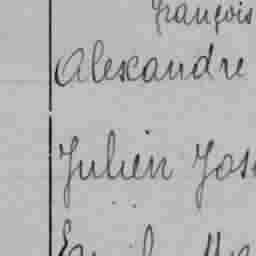 François
Alexandre
Julien Jos